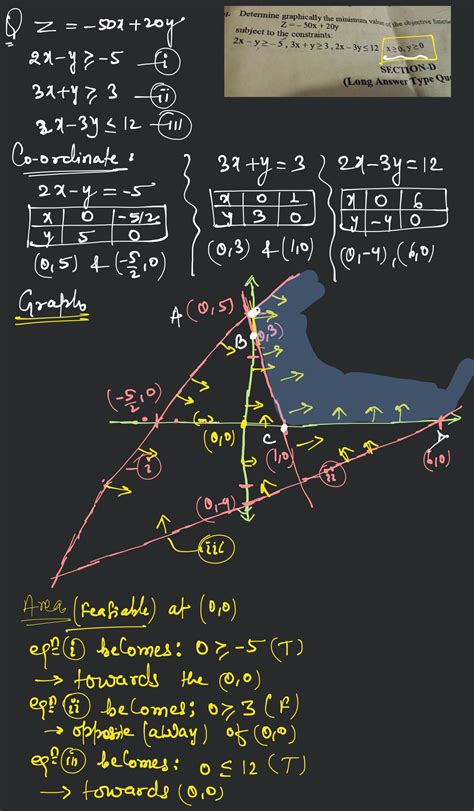 Q Z = -50x + 20y
2x - y ≥ -5 - (i)
3x + y ≥ 3 - (ii)
2x - 3y ≤ 12 - (iii)
Determine graphically the minimum value of the objective function
Z = – 50x + 20y
subject to the constraints:
2x – y ≥ – 5, 3x + y ≥ 3, 2x – 3y ≤ 12 x ≥ 0, y ≥ 0
SECTION-D
(Long Answer Type Qu
Co-ordinate:
2x - y = -5
x 0 -5/2
y 5 0
(0,5) & (-5/2,0)
3x + y = 3
x 0 1
y 3 0
(0,3) & (1,0)
2x - 3y = 12
x 0 6
y -4 0
(0,-4), (6,0)
Graph
A (0,5)
B (0,3)
(-5/2,0)
(0,0)
C
(1,0)
D
(6,0)
(i)
(ii)
(0,-4)
(iii)
Area (Feasiable) at (0,0)
eqn (i) becomes: 0 ≥ -5 (T)
→ towards the (0,0)
eqn (ii) becomes; 0 ≥ 3 (F)
→ opposite (away) of (0,0)
eqn (iii) becomes: 0 ≤ 12 (T)
→ towards (0,0)